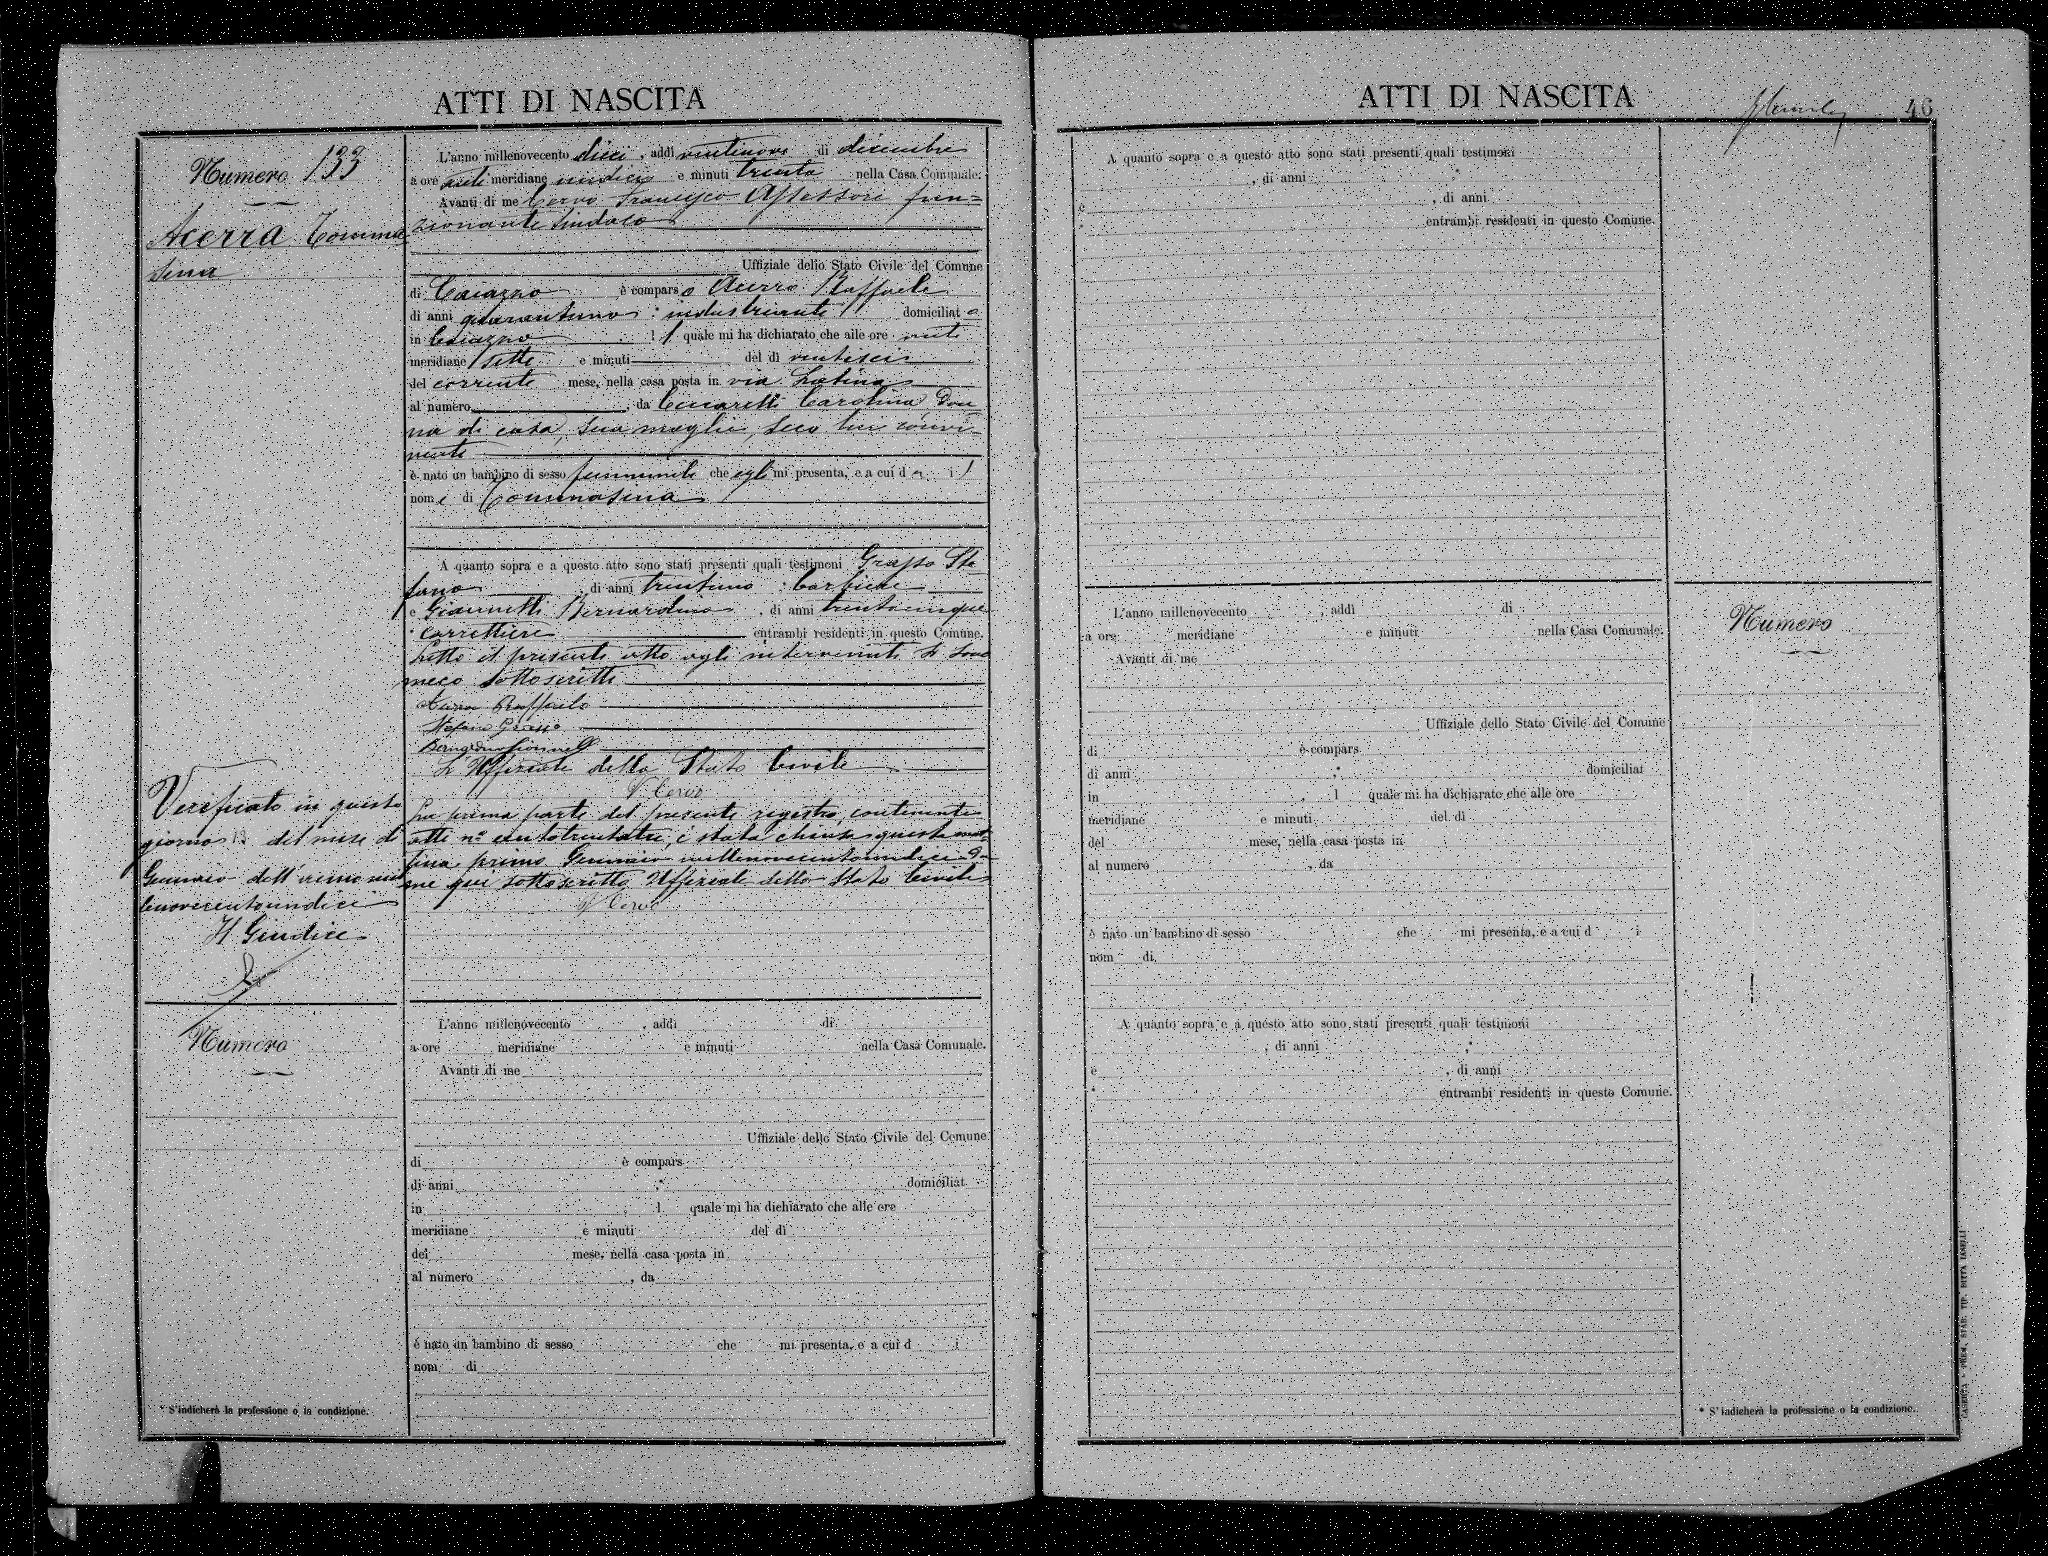 ATTI DI NASCITA
Numero 133
Acerra Tomma
sina
L'anno millenovecento dieci, addì ventinove di dicembre
a ore anti meridiane undici e minuti trenta nella Casa Comunale.
Avanti di me Cervo Francesco Assessore fun=
zionante Sindaco
Uffiziale dello Stato Civile del Comune
di Caiazzo è comparso Acerra Raffaele
di anni quarantuno industriante domiciliato
in Caiazzo il quale mi ha dichiarato che alle ore anti
meridiane sette e minuti del dì ventisei
del corrente mese, nella casa posta in via Latina
al numero, da Cucarelli Carolina, Don
na di casa, sua moglie, seco lui convi-
vente
è nato un bambino di sesso femminile che egli mi presenta, e a cui dà il
nome di Tommasina
A quanto sopra e a questo atto sono stati presenti quali testimoni Grasso Ste
fano, di anni trentuno barbiere
e Giannelli Bernardino, di anni trentacinque
carrettiere entrambi residenti in questo Comune.
Letto il presente atto agli intervenuti si sono
meco sottoscritti
Acerra Raffaele
Stefano Grasso
L'Uffiziale dello Stato Civile
F Cervo
La prima parte del presente registro, contenente
atti n.º centotrentatre, è stata chiusa questa mat
tina primo Gennaio millenovecentoundici da
me qui sottoscritto Uffiziale dello Stato Civile
F Cervo
Verificato in questo
giorno 13 del mese di
Gennaio dell'anno mil
lenovecentoundici
Il Giudice
Numero
L'anno millenovecento, addì di
a ore meridiane e minuti nella Casa Comunale.
Avanti di me
Uffiziale dello Stato Civile del Comune
di è compars
di anni * domiciliat
in l quale mi ha dichiarato che alle ore
meridiane e minuti del dì
del mese, nella casa posta in
al numero, da
è nato un bambino di sesso che mi presenta, e a cui d i
nom di
* S'indicherà la professione o la condizione.
ATTI DI NASCITA
46
A quanto sopra e a questo atto sono stati presenti quali testimoni
, di anni *
e , di anni
* entrambi residenti in questo Comune.
L'anno millenovecento, addì di
a ore meridiane e minuti nella Casa Comunale.
Avanti di me
Uffiziale dello Stato Civile del Comune
di è compars
di anni * domiciliat
in , l quale mi ha dichiarato che alle ore
meridiane e minuti del dì
del mese, nella casa posta in
al numero, da
è nato un bambino di sesso che mi presenta, e a cui d i
nom di
A quanto sopra e a questo atto sono stati presenti quali testimoni
, di anni *
e , di anni
* entrambi residenti in questo Comune.
Numero
* S'indicherà la professione o la condizione.